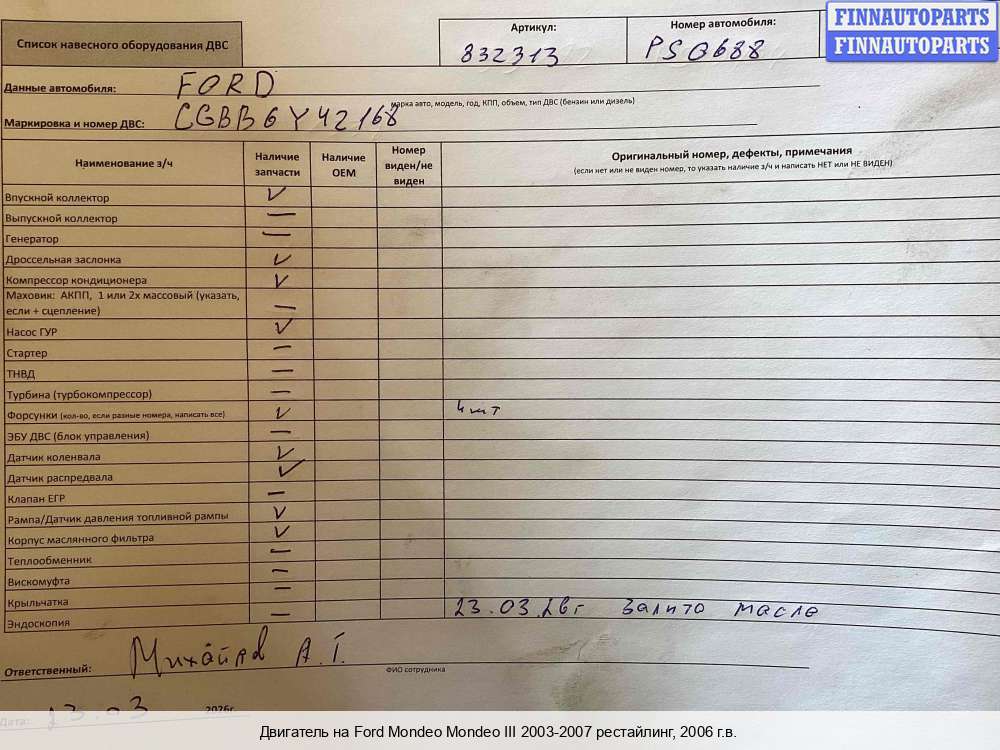 FINNAUTOPARTS
FINNAUTOPARTS
Список навесного оборудования ДВС
Артикул:
832313
Номер автомобиля:
PSG688
Данные автомобиля: FORD
марка авто, модель, год, КПП, объем, тип ДВС (бензин или дизель)
Маркировка и номер ДВС: CGBB6Y42168
Наименование з/ч
Наличие запчасти
Наличие OEM
Номер виден/не виден
Оригинальный номер, дефекты, примечания
(если нет или не виден номер, то указать наличие з/ч и написать НЕТ или НЕ ВИДЕН)
Впускной коллектор ✓
Выпускной коллектор —
Генератор —
Дроссельная заслонка ✓
Компрессор кондиционера ✓
Маховик: АКПП, 1 или 2х массовый (указать,
если + сцепление) —
Насос ГУР ✓
Стартер —
ТНВД —
Турбина (турбокомпрессор) —
Форсунки (кол-во, если разные номера, написать все) ✓ 4 шт
ЭБУ ДВС (блок управления) —
Датчик коленвала ✓
Датчик распредвала ✓
Клапан ЕГР —
Рампа/Датчик давления топливной рампы ✓
Корпус маслянного фильтра ✓
Теплообменник —
Вискомуфта —
Крыльчатка —
Эндоскопия — 23.03.26г залито масло
Ответственный: А.Г.
ФИО сотрудника
Дата: 23.03 2026г
Двигатель на Ford Mondeo Mondeo III 2003-2007 рестайлинг, 2006 г.в.